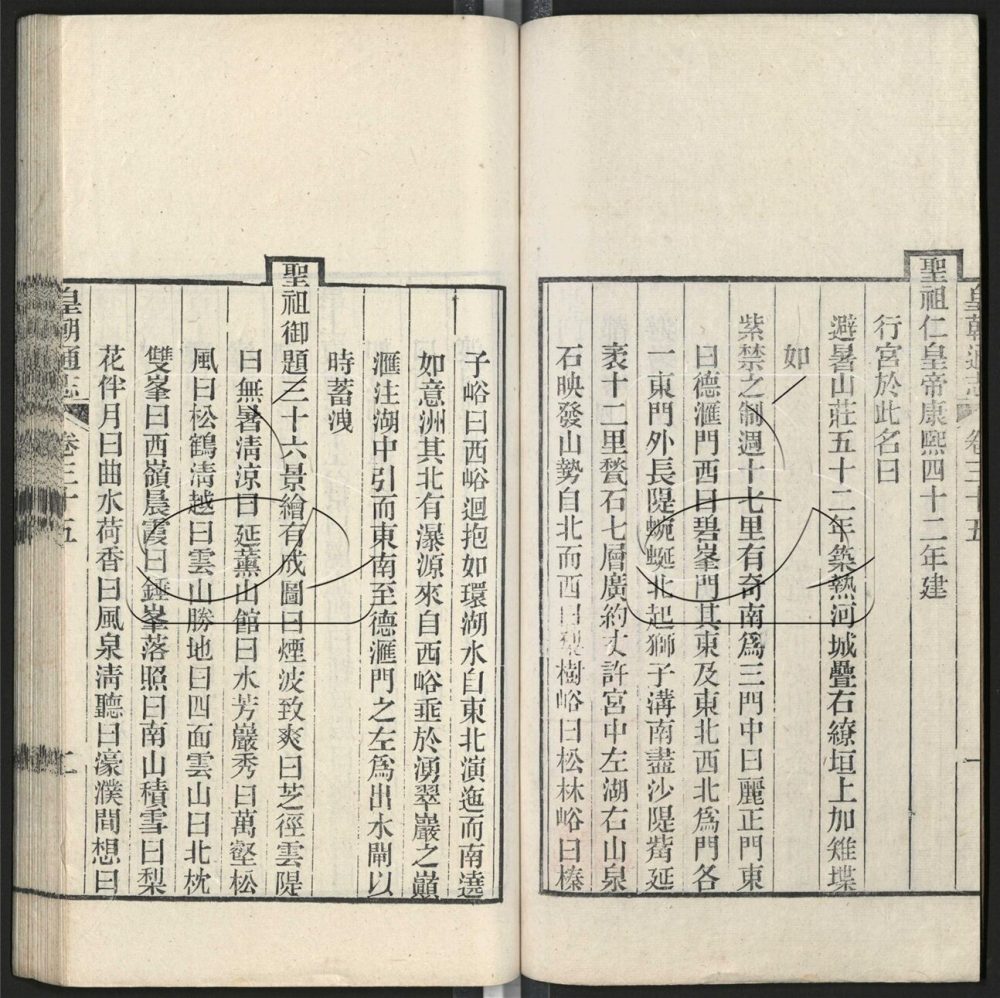 皇朝通志 卷三十五 一
聖祖仁皇帝康熙四十二年建
行宮於此名曰
避暑山莊五十二年築熱河城疊石繚垣上加雉堞
如
紫禁之制週十七里有奇南爲三門中曰麗正門東
曰德滙門西曰碧峯門其東及東北西北爲門各
一東門外長隄蜿蜒北起獅子溝南盡沙隄觜延
袤十二里甃石七層廣約丈許宮中左湖右山泉
石映發山勢自北而西曰梨樹峪曰松林峪曰榛
子峪曰西峪迴抱如環湖水自東北演迤而南遶
如意洲其北有瀑源來自西峪垂於湧翠巖之巔
滙注湖中引而東南至德滙門之左爲出水閘以
時蓄洩
聖祖御題三十六景繪有成圖曰煙波致爽曰芝徑雲隄
曰無暑清涼曰延薰山館曰水芳巖秀曰萬壑松
風曰松鶴清越曰雲山勝地曰四面雲山曰北枕
雙峯曰西嶺晨霞曰錘峯落照曰南山積雪曰梨
花伴月曰曲水荷香曰風泉清聽曰濠濮間想曰
皇朝通志 卷三十五 二